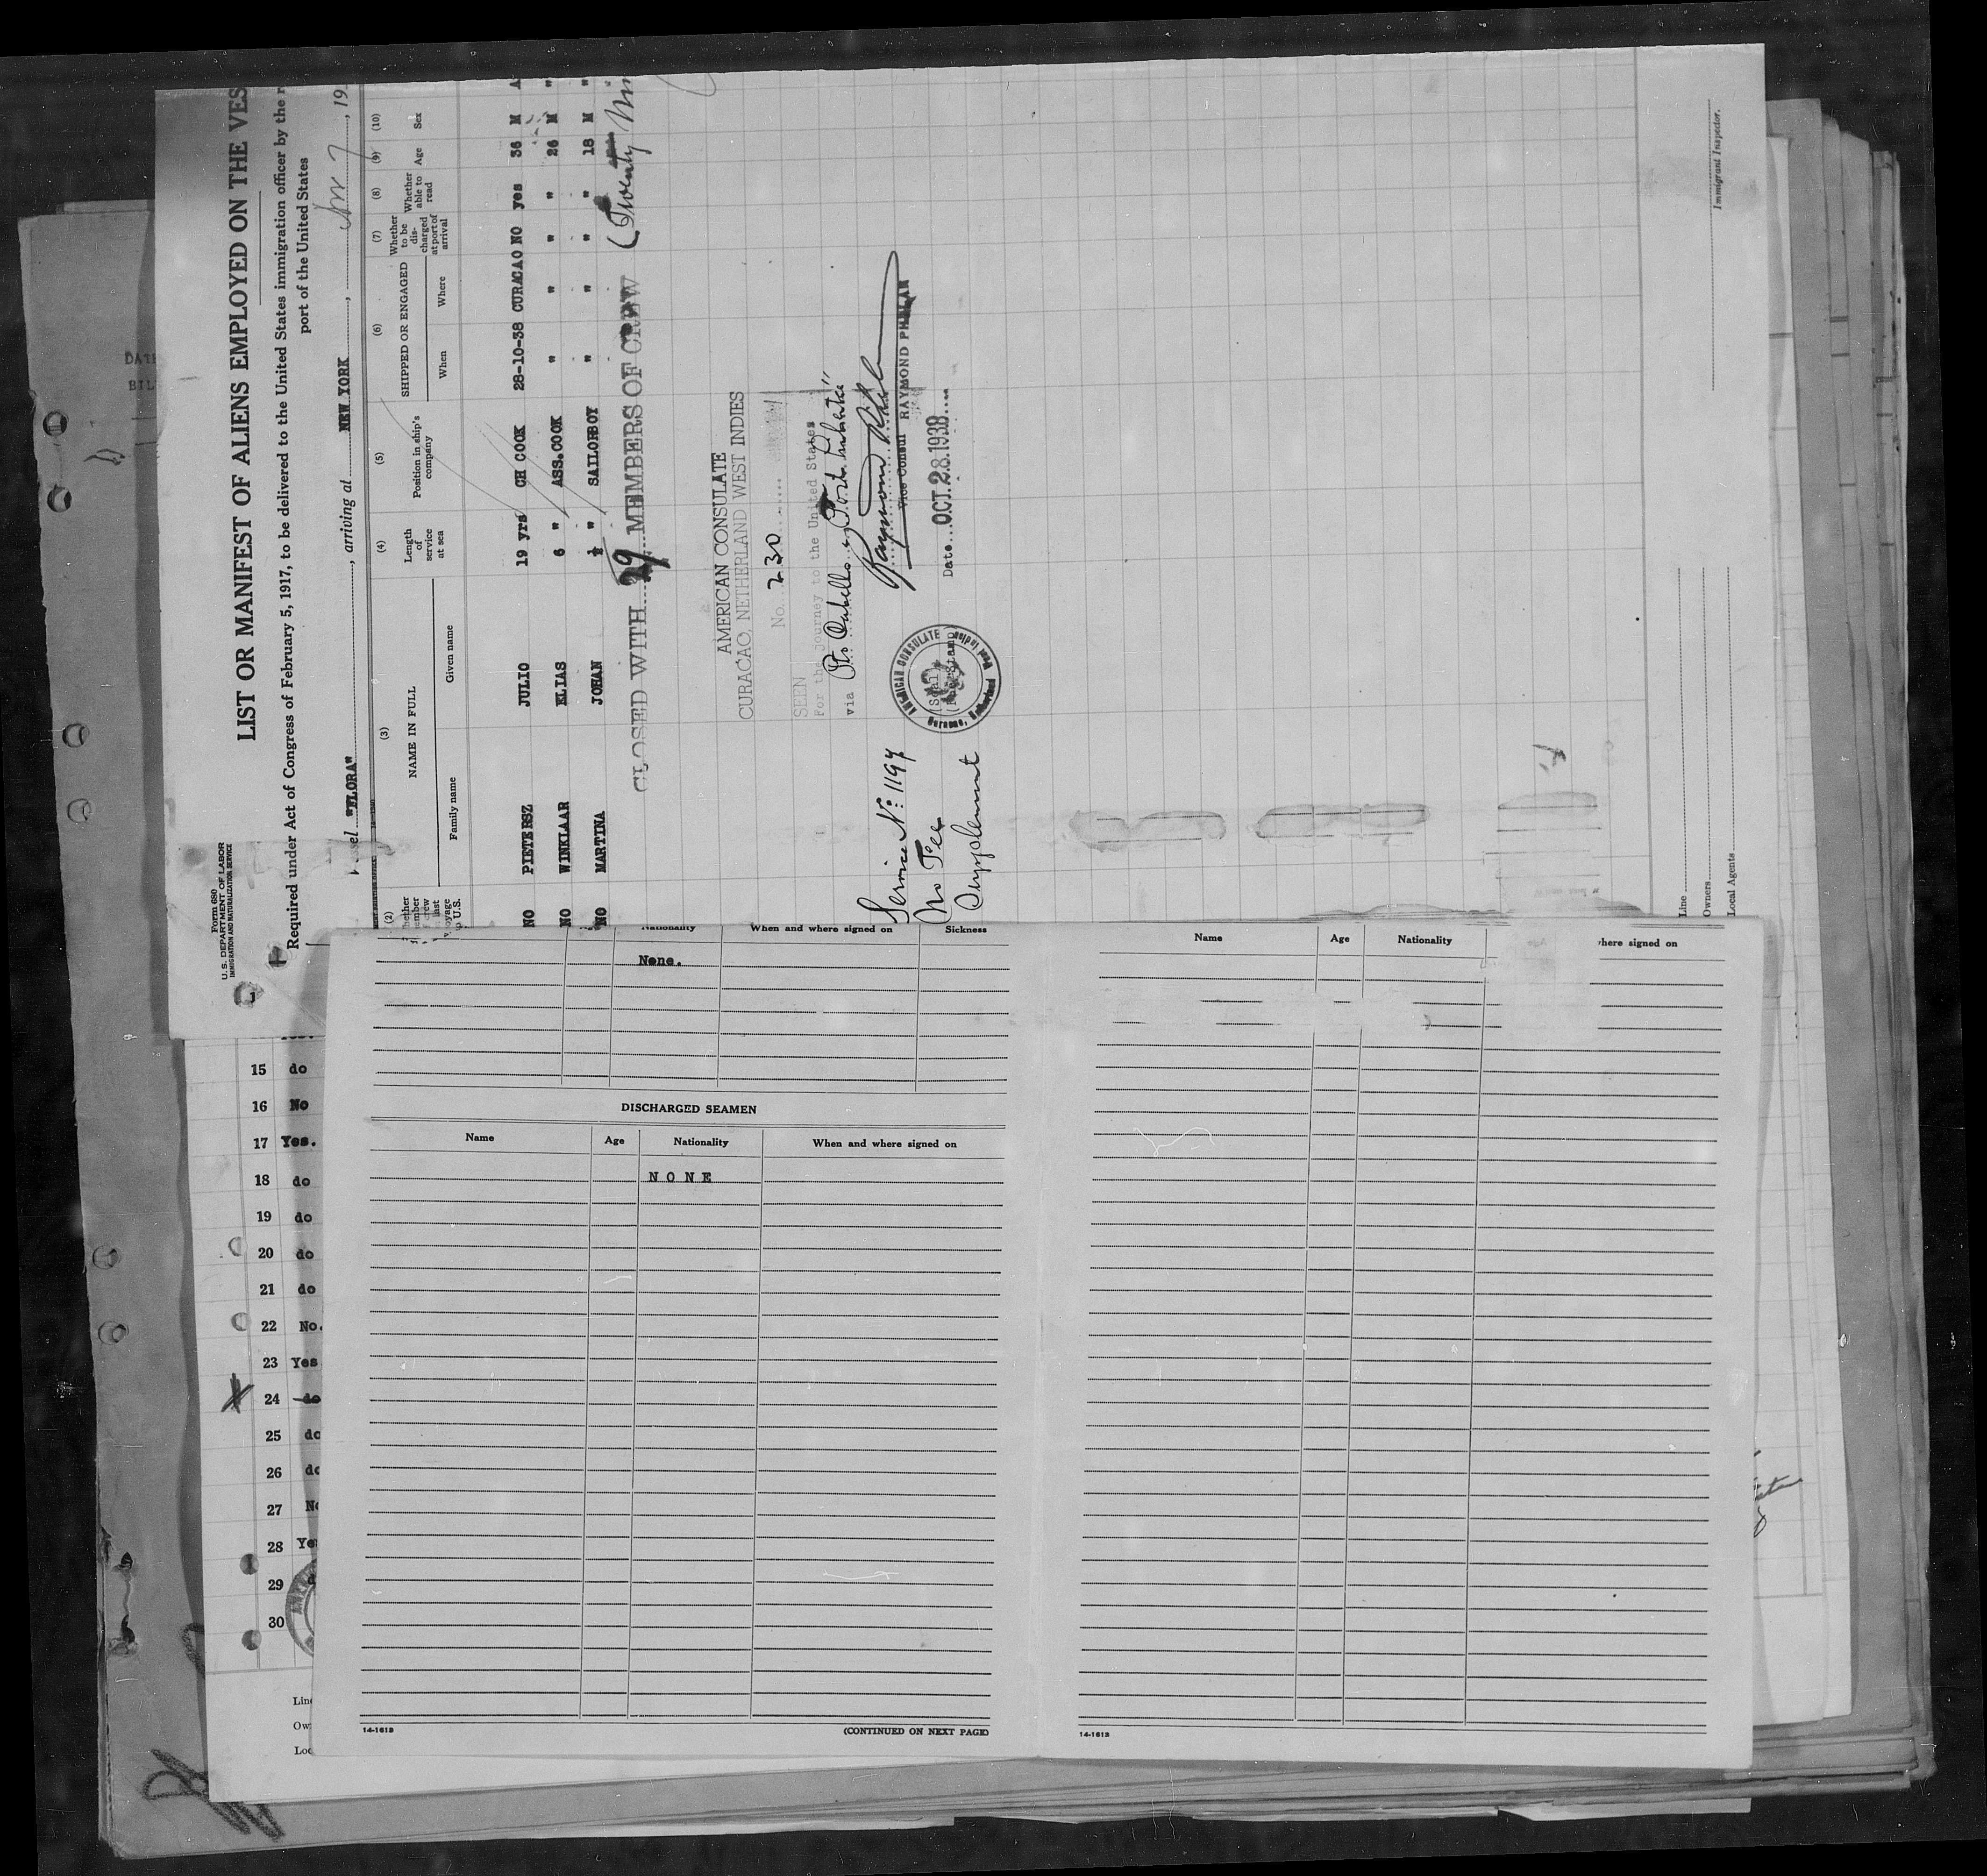 Form 680
U.S. DEPARTMENT OF LABOR
IMMIGRATION AND NATURALIZATION SERVICE
LIST OR MANIFEST OF ALIENS EMPLOYED ON THE VES
Required under Act of Congress of February 5, 1917, to be delivered to the United States immigration officer by the r
port of the United States
"FLORA" , arriving at NEW YORK , , 19
(2) (3) (4) (5) (6) (7) (8) (9) (10)
NAME IN FULL
Family name Given name
Length of service at sea
Position in ship's company
SHIPPED OR ENGAGED
When Where
Whether to be discharged at port of arrival
Whether able to read
Age
Sex
NO PIETERSZ JULIO 19 yrs CH COOK 28-10-38 CURACAO NO yes 36 M
NO WINKLAAR ELIAS 6 " ASS.COOK " " " " 26 M "
NO MARTINA JOHAN ½ " SAILORBOY " " " " 18 M "
CLOSED WITH 29 MEMBERS OF CREW (Twenty
AMERICAN CONSULATE
CURACAO, NETHERLAND WEST INDIES
No. 230
SEEN
For the Journey to the United States
via Pto Cabello
Raymond Phelan
Vice Consul RAYMOND PHELAN
Date OCT. 28. 1938
AMERICAN CONSULATE
Service No: 1197
No Fee
Supplement
Line
Owners
Local Agents
Immigrant Inspector.
15 do
16 No
17 Yes.
18 do
19 do
20 do
21 do
22 No.
23 Yes
24 do
25 do
26 do
27 No
28 Yes
29
30
Nationality When and where signed on Sickness
None.
DISCHARGED SEAMEN
Name Age Nationality When and where signed on
NONE
14-1613 (CONTINUED ON NEXT PAGE)
Name Age Nationality here signed on
14-1613